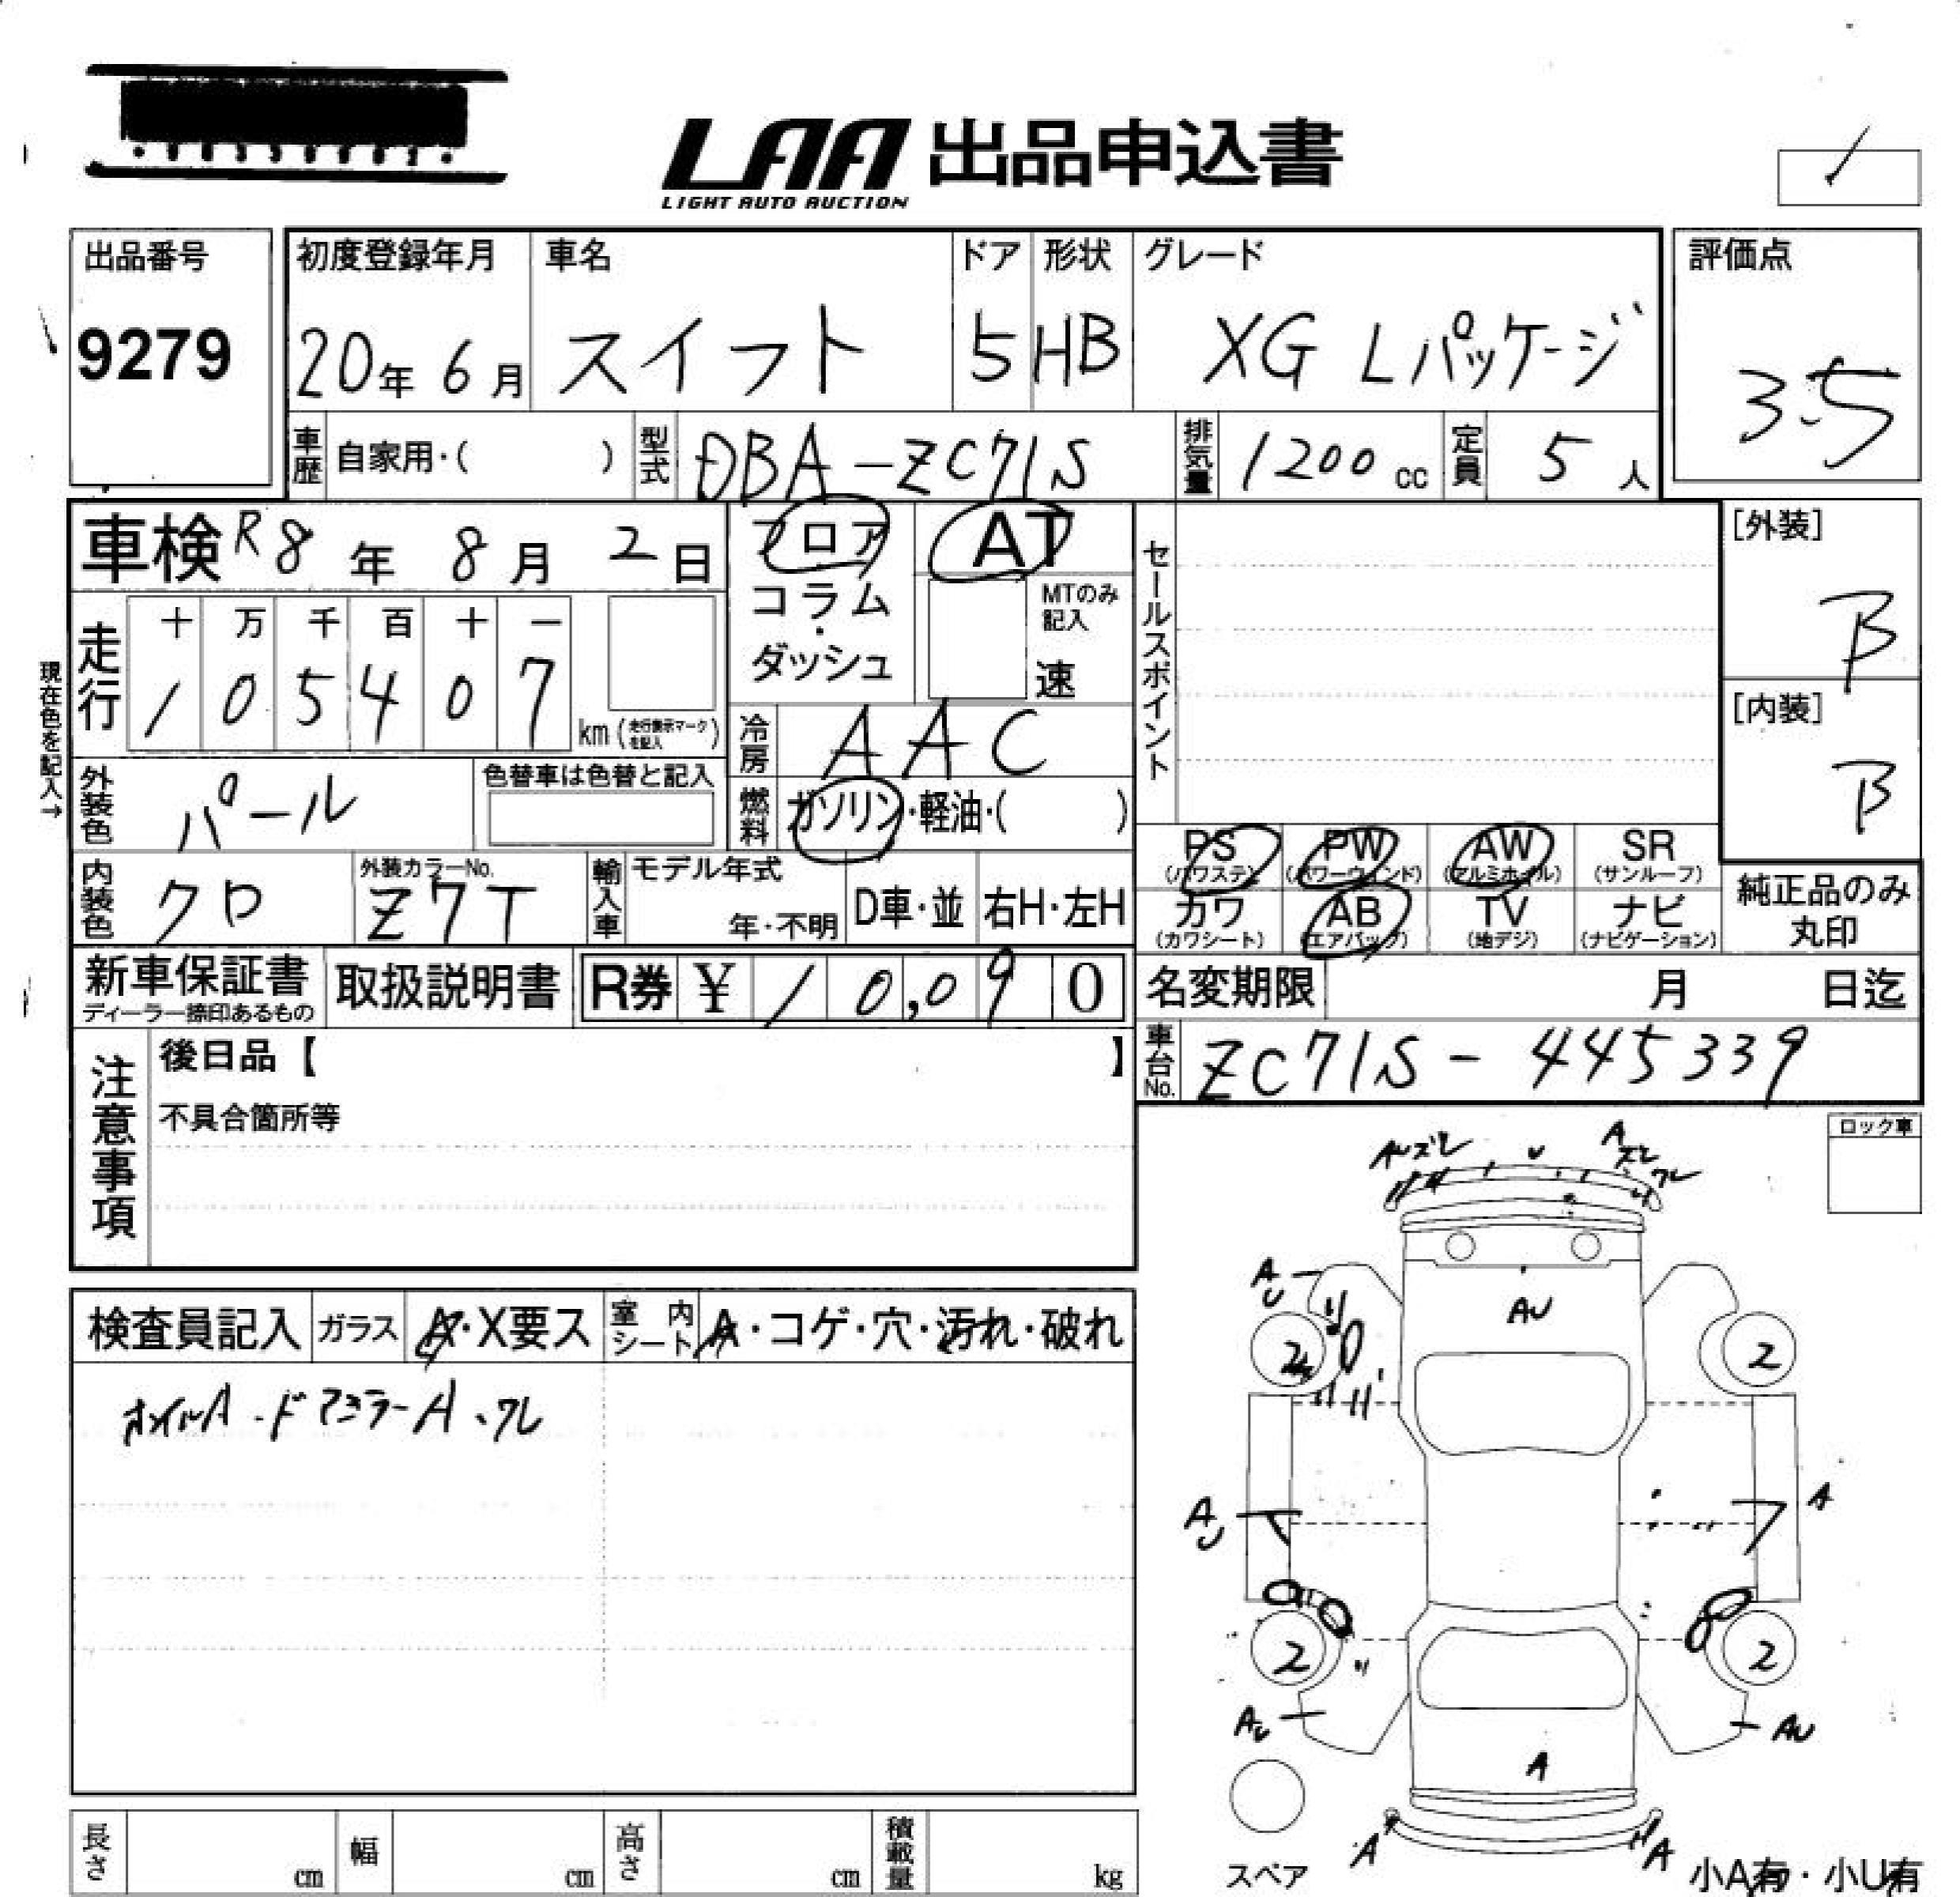 LAA 出品申込書
LIGHT AUTO AUCTION
出品番号
9279
初度登録年月
20年 6月
車名
スイフト
ドア
5
形状
HB
グレード
XG Lパッケージ
評価点
3.5
車歴 自家用・( )
型式 DBA-ZC71S
排気量 1200 cc
定員 5 人
車検 R8 年 8 月 2 日
フロア
コラム
・
ダッシュ
AT
MTのみ
記入
速
セールスポイント
[外装]
B
[内装]
B
現在色を記入→
走行
十 万 千 百 十 一
1 0 5 4 0 7
km (走行表示マークを記入)
冷房 AAC
外装色 パール
色替車は色替と記入
燃料 ガソリン・軽油・( )
PS PW AW SR
(パワステ) (パワーウィンド) (アルミホイル) (サンルーフ)
カワ AB TV ナビ
(カワシート) (エアバッグ) (地デジ) (ナビゲーション)
純正品のみ
丸印
内装色 クロ
外装カラーNo.
Z7T
輸入車
モデル年式
年・不明
D車・並
右H・左H
新車保証書
ディーラー捺印あるもの
取扱説明書
R券 ¥ 10,090
名変期限 月 日迄
車台No. ZC71S-445339
注意事項
後日品【 】
不具合箇所等
ロック車
検査員記入
ガラス A・X要ス
室内シート A・コゲ・穴・汚れ・破れ
ホイルA・ドアミラーA、ワレ
AUズレ
U
A
ズレ
ワレ
A
U
AU
2
2
A
U
A
2
2
AU
AU
A
A
A
スペア
小A有・小U有
長さ cm
幅 cm
高さ cm
積載量 kg